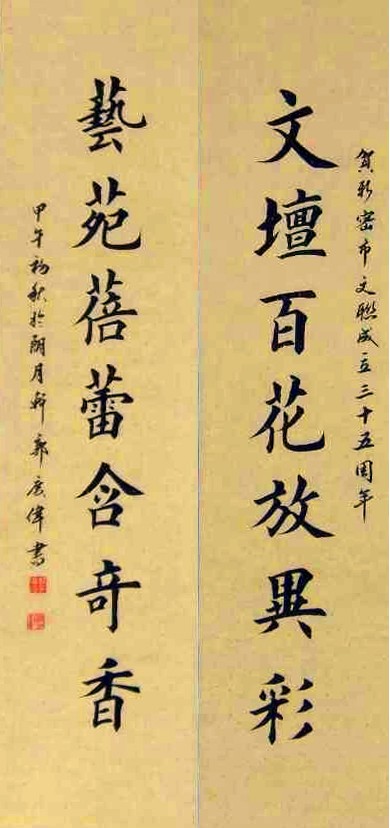 賀新密市文聯成立三十五周年
文壇百花放異彩
藝苑蓓蕾含奇香
甲午初秋於朗月軒郭彥偉書